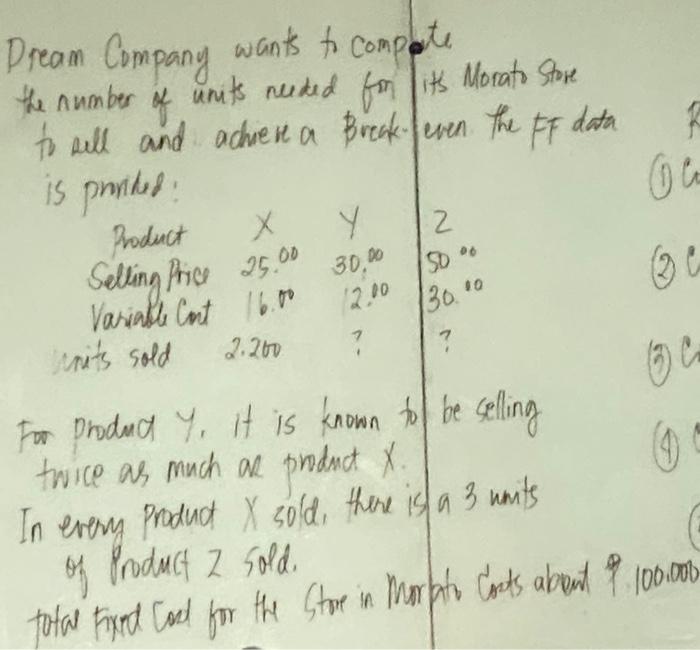 Dream Company wants to compute
the number of units needed for its Morato Store
to sell and achieve a Break-even the FF data
is provided:
Product X Y Z
Selling Price 25.00 30.00 50.00
Variable Cost 16.00 12.00 30.00
units sold 2.200 ? ?
For product Y, it is known to be selling
twice as much as product X.
In every Product X sold, there is a 3 units
of Product Z sold.
total Fixed Cost for the Store in Morato Costs about ₱ 100,000
R
① C
② C
③ C
④ C